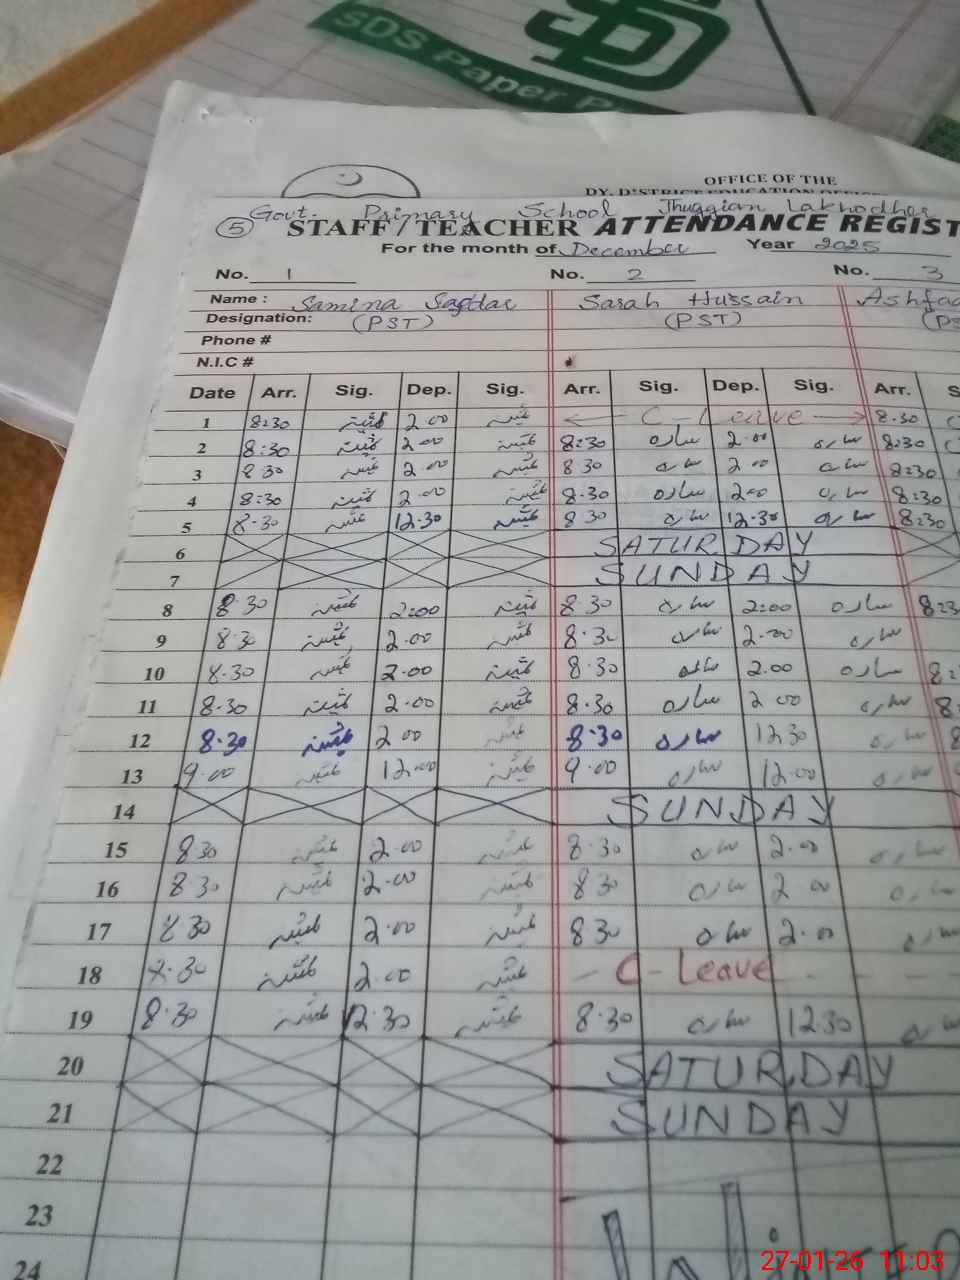 SDS Paper Pr
OFFICE OF THE
DY. DISTRICT EDUCATION OFFICE
Govt. Primary School Jhuggian Lakhodher
5 STAFF / TEACHER ATTENDANCE REGIST
For the month of December Year 2025
No. 1 No. 2 No. 3
Name : Samina Safdar Sarah Hussain Ashfa
Designation: (PST) (PST) (PS
Phone #
N.I.C #
Date Arr. Sig. Dep. Sig. Arr. Sig. Dep. Sig. Arr. S
1 8:30 ثمینہ 2.00 ثمینہ C-Leave 8.30
2 8:30 ثمینہ 2.00 ثمینہ 8:30 سارہ 2.00 سارہ 8:30
3 8.30 ثمینہ 2.00 ثمینہ 8.30 سارہ 2.00 سارہ 8:30
4 8:30 ثمینہ 2.00 ثمینہ 8.30 سارہ 2.00 سارہ 8:30
5 8.30 ثمینہ 12.30 ثمینہ 8.30 سارہ 12.30 سارہ 8:30
6 SATURDAY
7 SUNDAY
8 8.30 ثمینہ 2:00 ثمینہ 8.30 سارہ 2:00 سارہ 8:3
9 8.30 ثمینہ 2.00 ثمینہ 8.30 سارہ 2.00 سارہ
10 8.30 ثمینہ 2.00 ثمینہ 8.30 سارہ 2.00 سارہ 8:
11 8.30 ثمینہ 2.00 ثمینہ 8.30 سارہ 2.00 سارہ 8:
12 8.30 ثمینہ 2.00 ثمینہ 8.30 سارہ 12.30 سارہ 8
13 9.00 ثمینہ 12.00 ثمینہ 9.00 سارہ 12.00 سارہ
14 SUNDAY
15 8.30 ثمینہ 2.00 ثمینہ 8.30 سارہ 2.00 سارہ
16 8.30 ثمینہ 2.00 ثمینہ 8.30 سارہ 2.00 سارہ
17 8.30 ثمینہ 2.00 ثمینہ 8.30 سارہ 2.00 سارہ
18 8.30 ثمینہ 2.00 ثمینہ C-Leave
19 8.30 ثمینہ 12.30 ثمینہ 8.30 سارہ 12.30 سارہ
20 SATURDAY
21 SUNDAY
22
23
24
27-01-26 11:03